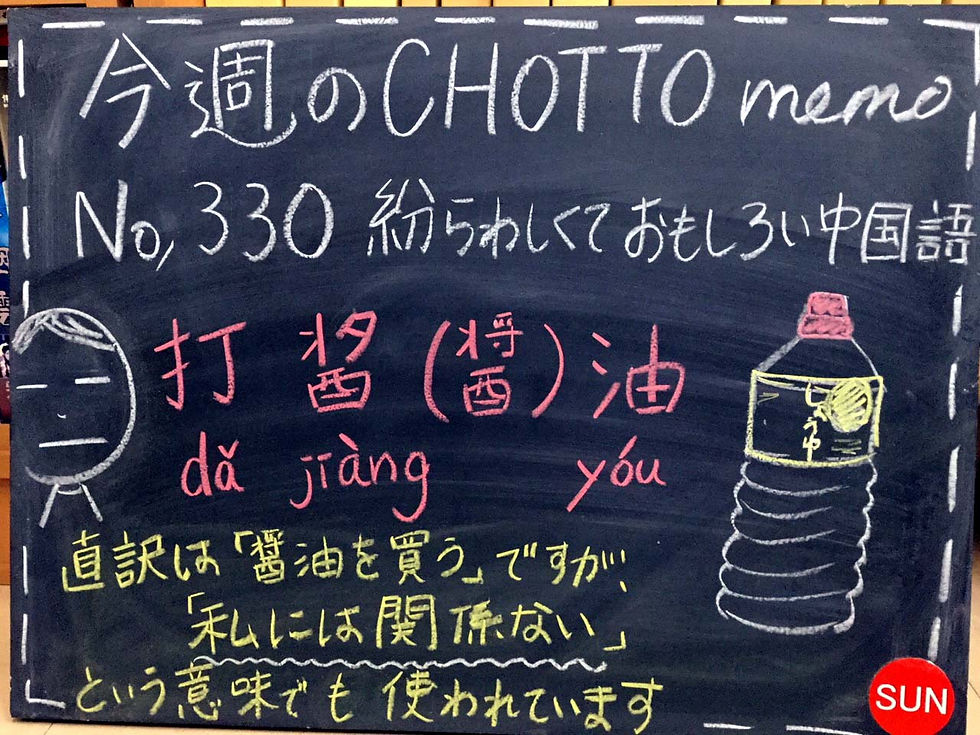 今週のCHOTTO memo
No,330 紛らわしくておもしろい中国語
打 酱(醤)油
dǎ jiàng yóu
しょうゆ
直訳は「醤油を買う」ですが、
「私には関係ない」
という意味でも使われています
SUN